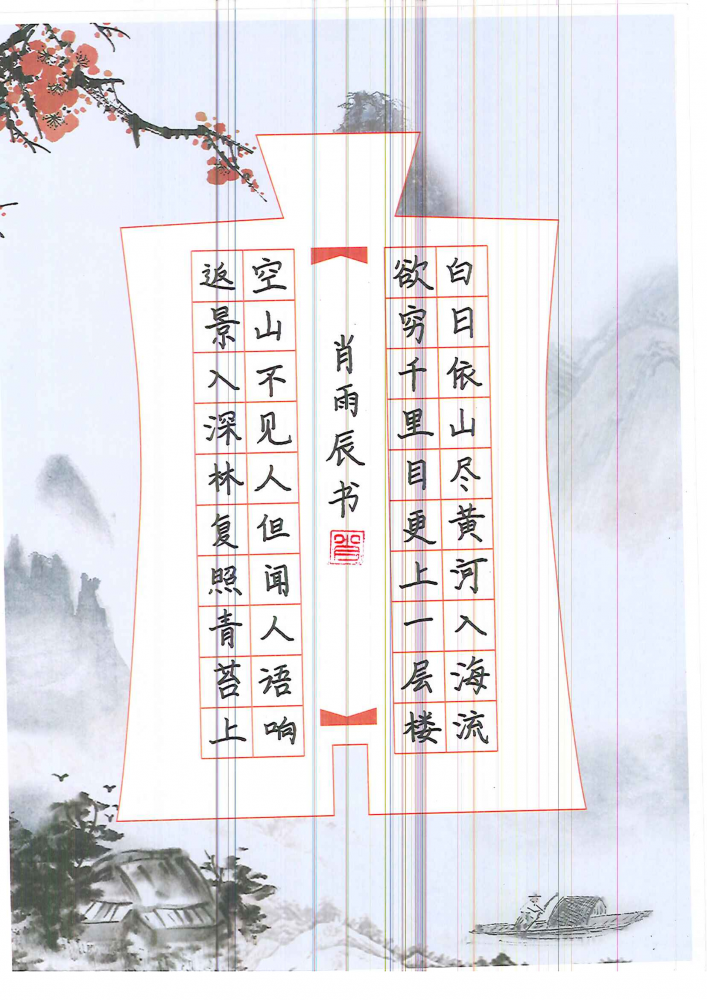 白日依山尽黄河入海流
欲穷千里目更上一层楼
肖雨辰书
空山不见人但闻人语响
返景入深林复照青苔上